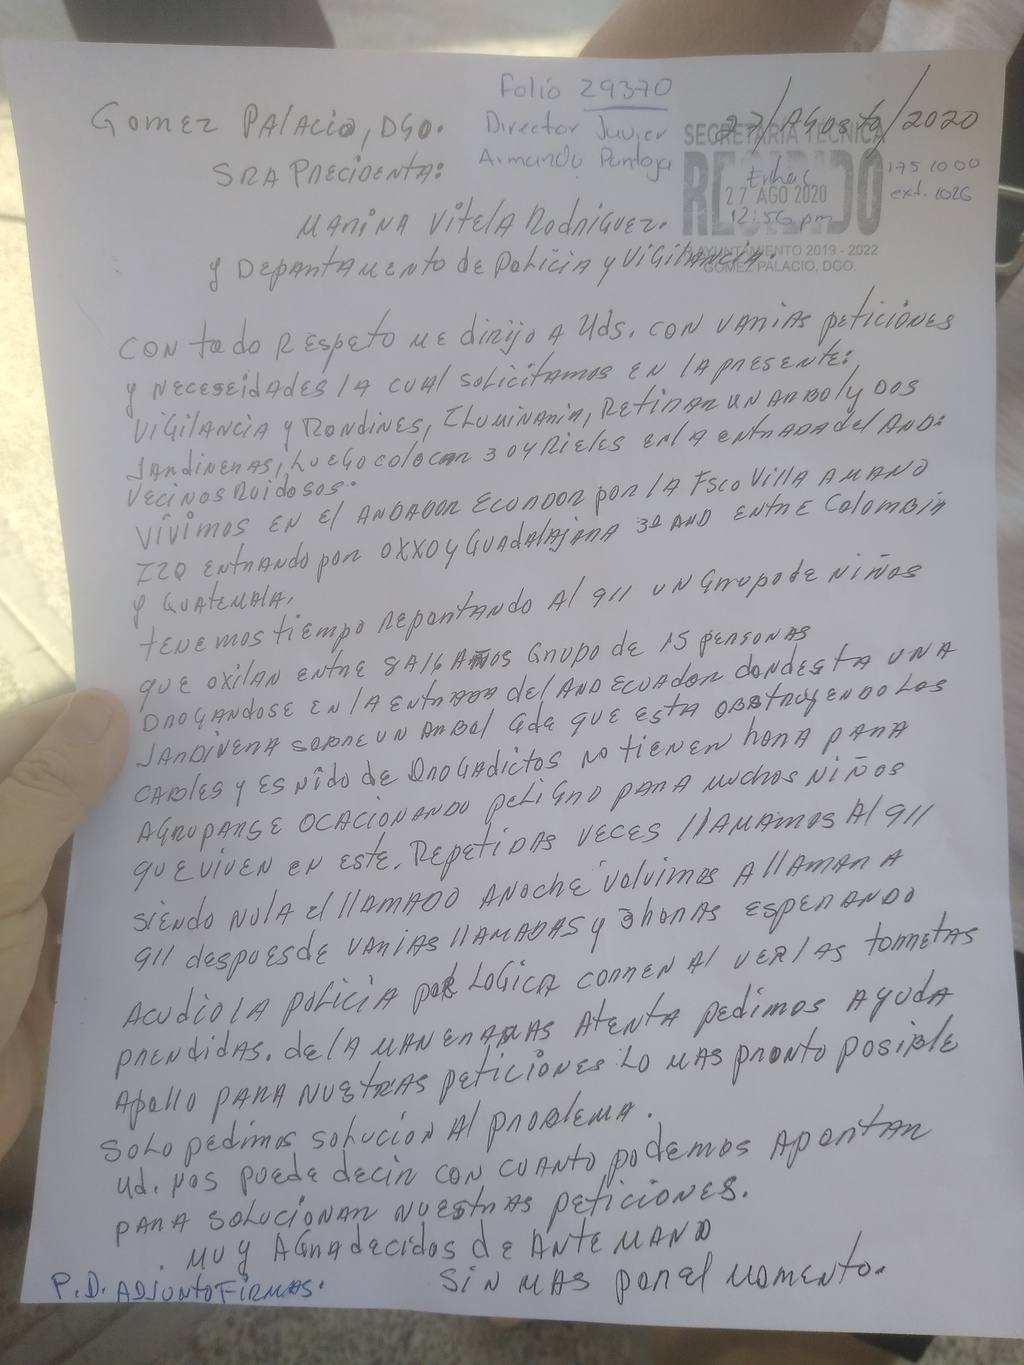 Folio 29370
27/Agosto/2020
Gomez Palacio, DGO.
Director Javier
Armando Pantoja
SECRETARIA TECNICA
RECIBIDO
27 AGO 2020
12:56 pm
R. AYUNTAMIENTO 2019 - 2022
GOMEZ PALACIO, DGO.
175 10 00
ext. 1026
SRA PRECIDENTA:
MARINA VITELA RODRIGUEZ.
y DEPARTAMENTO de Policia y VIGILANCIA.
CON todo RESPETO ME DIRIJO A Uds. CON VARIAS PETICIONES
y NECESEIDADES LA CUAL SOLICITAMOS EN LA PRESENTE:
VIGILANCIA y RONDINES, ILUMINARIA, RETIRAR UN ARBOL y DOS
JARDINERAS, LUEGO COLOCAR 3 o 4 RIELES EN LA ENTRADA del AND:
VECINOS RUIDOSOS.
VIVIMOS EN El ANDADOR ECUADOR por LA FSCO VILLA A MANO
IZQ ENTRANDO por OXXO y GUADALAJARA 3º AND ENTRE COLOMBIA
y GUATEMALA.
TENEMOS TIEMPO REPORTANDO Al 911 UN GRUPO DE NIÑOS
QUE OXILAN ENTRE 8 A 16 AÑOS GRUPO DE 15 PERSONAS
DROGANDOSE EN LA ENTRADA del AND ECUADOR DONDESTA UNA
JARDINERA SOBRE UN ARBOL Gde QUE ESTA OBSTRUYENDO LOS
CABLES y ES NIDO DE DROGADICTOS NO TIENEN HORA PARA
AGRUPARSE OCACIONANDO PELIGRO PARA MUCHOS NIÑOS
QUE VIVEN EN ESTE. REPETIDAS VECES LLAMAMOS Al 911
SIENDO NULA el LLAMADO ANOCHE VOLVIMOS A LLAMAR A
911 DESPUES DE VARIAS LLAMADAS y 3 HORAS ESPERANDO
ACUDIO LA POLICIA POR LOGICA CORREN AL VER LAS TORRETAS
PRENDIDAS. DE LA MANERA MAS ATENTA PEDIMOS AYUDA
APOLLO PARA NUESTRAS PETICIONES LO MAS PRONTO POSIBLE
SOLO PEDIMOS SOLUCION Al PROBLEMA.
Ud. NOS PUEDE DECIR CON CUANTO PODEMOS APORTAR
PARA SOLUCIONAR NUESTRAS PETICIONES.
MUY AGRADECIDOS DE ANTE MANO
SIN MAS POR el MOMENTO.
P.D. ADJUNTO FIRMAS.